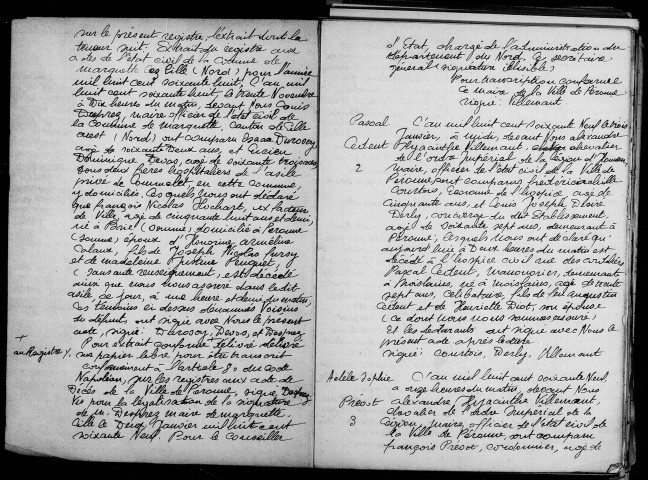 sur le présent registre, l'extrait dont la
teneur suit. Extrait du registre aux
actes de l'état civil de la Comune de
marquette lez Lille (Nord) pour l'année
mil huit cent soixante huit. L'an mil
huit cent soixante huit, le trente Novembre
à dix heures du matin, devant Nous Louis
Desprez, maire officier de l'état civil de
la Commune de marquette, Canton de Lille
ouest (Nord) ont comparu Isaac Durossoy
agé de soixante deux ans, et Lucien
Dominique Devos, agé de soixante trois ans
tous deux frères hospitaliers de l'asile
privé de Lommelet, en cette Commune,
y domiciliés, lesquels nous ont déclaré
que françois Nicolas Huchart, ex facteur
de Ville, agé de cinquante huit ans et demi,
né à (Somme), domicilié à Péronne
(Somme) époux d'Honorine armeline
fils de Joseph Nicolas
et de madeleine Justine
(sans autre renseignement), est décédé
ainsi que nous nous assuré dans le dit
asile, ce jour, à une heure et demi du matin,
les témoins ci dessus dénommés Voisins
du défunt, ont signé avec Nous le présent
acte, signé: Durossoy, Devos, et Desprez
Pour extrait conforme délivré
+
au Registre sur papier libre pour être transcrit
conformément à l'article 80 du Code
Napoléon, sur les registres aux acte de
Décès de la Ville de Péronne, signé Desprez
Vu pour la légalisation de la signature
de m. Desprez maire de marquette.
Lille le Deux Janvier mil huit cent
soixante Neuf. Pour le Conseiller
d'Etat, chargé de l'administration du
département du Nord, Le secrétaire
général (signature illisible)
Pour transcription conforme
Le maire de la Ville de Péronne
signé: Villemant
Pascal L'an mil huit cent soixante Neuf le trois
Janvier, à midi, devant Nous alexandre
Cedent Hyacinthe Villemant, chevalier
de l'ordre Impérial de la Légion d'Honneur
2 maire, officier de l'état civil de la Ville de
Péronne, sont comparu frédéric achille
Courtois, économe de l'hospice agé de
Cinquante ans, et Louis Joseph Désiré
Derly, concierge du dit Etablissement,
agé de soixante sept ans, demeurant à
Péronne, lesquels Nous ont déclaré qu'
aujourd'hui à Deux heures du matin est
décédé à l'hospice civil rue des
Pascal Cedent, manouvrier, demeurant
à Moislains, né à moislains, agé de
sept ans, célibataire, fils de feu augustin
Cedent et de Henriette Duot, son épouse
(ce dont nous nous sommes assuré)
Et les déclarants ont signé avec Nous le
présent acte après lecture
signé: Courtois, Derly, Villemant
Adèle Sophie L'an mil huit cent soixante Neuf
à onze heures du matin, devant Nous
Prevot alexandre Hyacinthe Villemant,
chevalier de l'ordre Impérial de la
3 Légion, maire, officier de l'état civil de
la Ville de Péronne, sont comparu
françois Prevot, cordonnier, agé de